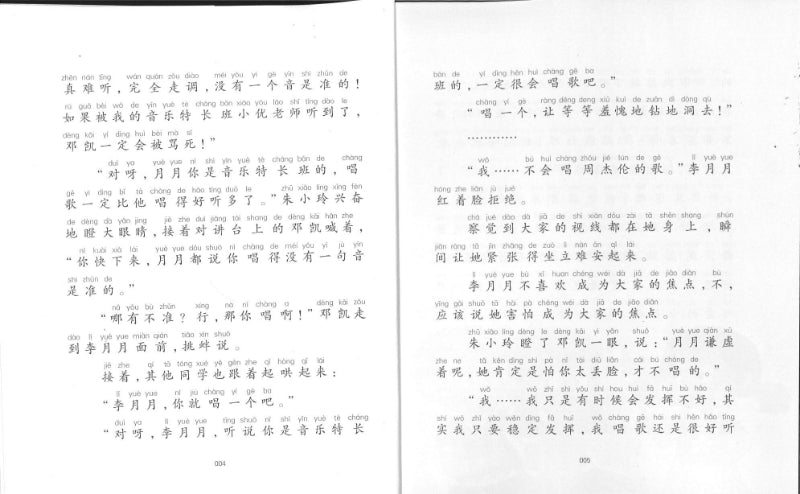 zhēn nán tīng wán quán zǒu diào méi yǒu yí gè yīn shì zhǔn de
真难听，完全走调，没有一个音是准的！
rú guǒ bèi wǒ de yīn yuè tè cháng bān xiǎo yōu lǎo shī tīng dào le
如果被我的音乐特长班小优老师听到了，
dèng kǎi yí dìng huì bèi mà sǐ
邓凯一定会被骂死！”
duì ya yuè yue nǐ shì yīn yuè tè cháng bān de chàng
“对呀，月月你是音乐特长班的，唱
gē yí dìng bǐ tā chàng de hǎo tīng duō le zhū xiǎo líng xīng fèn
歌一定比他唱得好听多了。”朱小玲兴奋
de dèng dà yǎn jing jiē zhe duì jiǎng tái shang de dèng kǎi hǎn zhe
地瞪大眼睛，接着对讲台上的邓凯喊着，
nǐ kuài xià lái yuè yue dōu shuō nǐ chàng de méi yǒu yí jù yīn
“你快下来，月月都说你唱得没有一句音
shì zhǔn de
是准的。”
nǎ yǒu bù zhǔn xíng nà nǐ chàng a dèng kǎi zǒu
“哪有不准？行，那你唱啊！”邓凯走
dào lǐ yuè yue miàn qián tiǎo xìn shuō
到李月月面前，挑衅说。
jiē zhe qí tā tóng xué yě gēn zhe qǐ hòng qǐ lái
接着，其他同学也跟着起哄起来：
lǐ yuè yue nǐ jiù chàng yí gè ba
“李月月，你就唱一个吧。”
duì ya lǐ yuè yue tīng shuō nǐ shì yīn yuè tè cháng
“对呀，李月月，听说你是音乐特长
004
bān de yí dìng hěn huì chàng gē ba
班的，一定很会唱歌吧。”
chàng yí gè ràng děng deng xiū kuì de zuān dì dòng qù
“唱一个，让等等羞愧地钻地洞去！”
…………
wǒ bú huì chàng zhōu jié lún de gē lǐ yuè yue
“我……不会唱周杰伦的歌。”李月月
hóng zhe liǎn jù jué
红着脸拒绝。
chá jué dào dà jiā de shì xiàn dōu zài tā shēn shang shùn
察觉到大家的视线都在她身上，瞬
jiān ràng tā jǐn zhāng de zuò lì nán ān qǐ lái
间让她紧张得坐立难安起来。
lǐ yuè yue bù xǐ huan chéng wéi dà jiā de jiāo diǎn bù
李月月不喜欢成为大家的焦点，不，
yīng gāi shuō tā hài pà chéng wéi dà jiā de jiāo diǎn
应该说她害怕成为大家的焦点。
zhū xiǎo líng dèng le dèng kǎi yì yǎn shuō yuè yue qiān xū
朱小玲瞪了邓凯一眼，说：“月月谦虚
zhe ne tā kěn dìng shì pà nǐ tài diū liǎn cái bú chàng de
着呢，她肯定是怕你太丢脸，才不唱的。”
wǒ wǒ zhǐ shì yǒu shí hou huì fā huī bù hǎo qí
“我……我只是有时候会发挥不好，其
shí wǒ zhǐ yào wěn dìng fā huī wǒ chàng gē hái shì hěn hǎo tīng
实我只要稳定发挥，我唱歌还是很好听
005